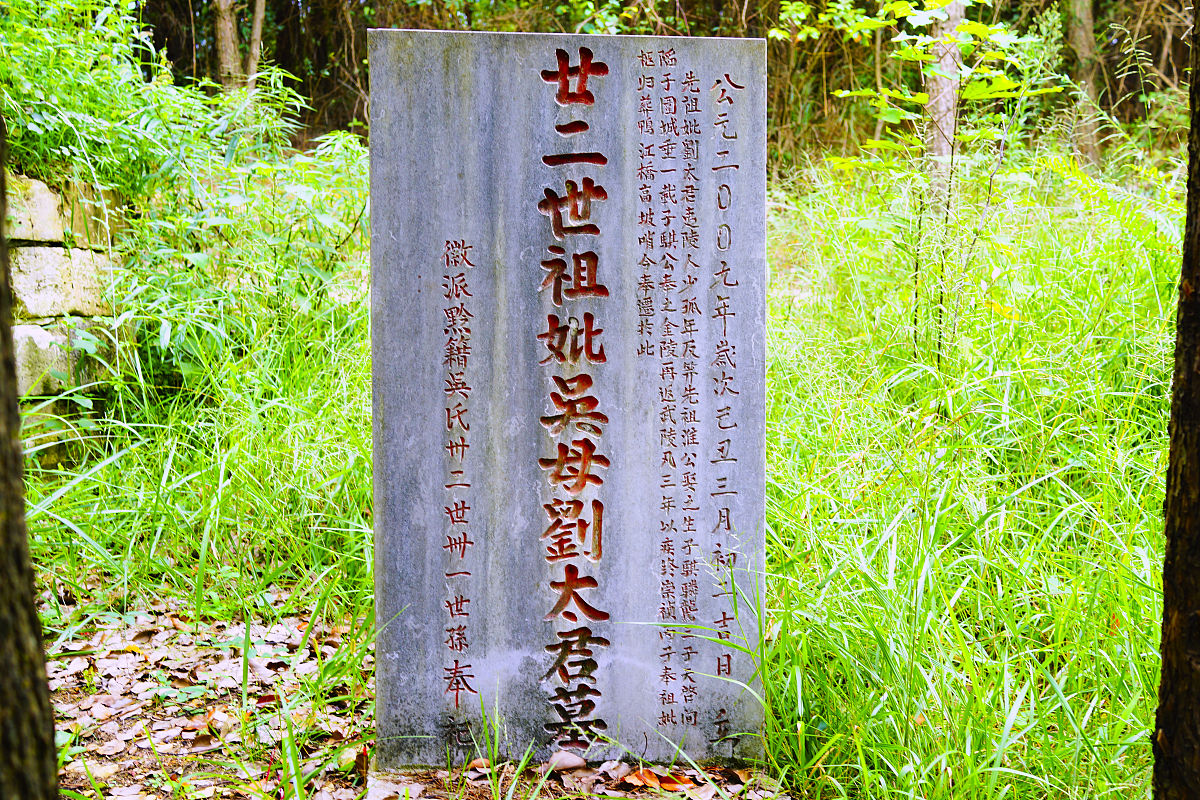 公元二〇〇九年歲次己丑三月初二吉日立
先祖妣劉太君夷陵人少孤年及笄先祖淮公娶之生子騏驎龍三子天啓间
陷于圍城重一載子騏公奉之金陵再返武陵凡三年以疾終崇禎丙子奉祖妣
柩归葬鴨江橋高坡哨今奉遷扵此
廿二世祖妣吳母劉太君墓
徽派黟籍吳氏卅二世卌一世孫奉祀